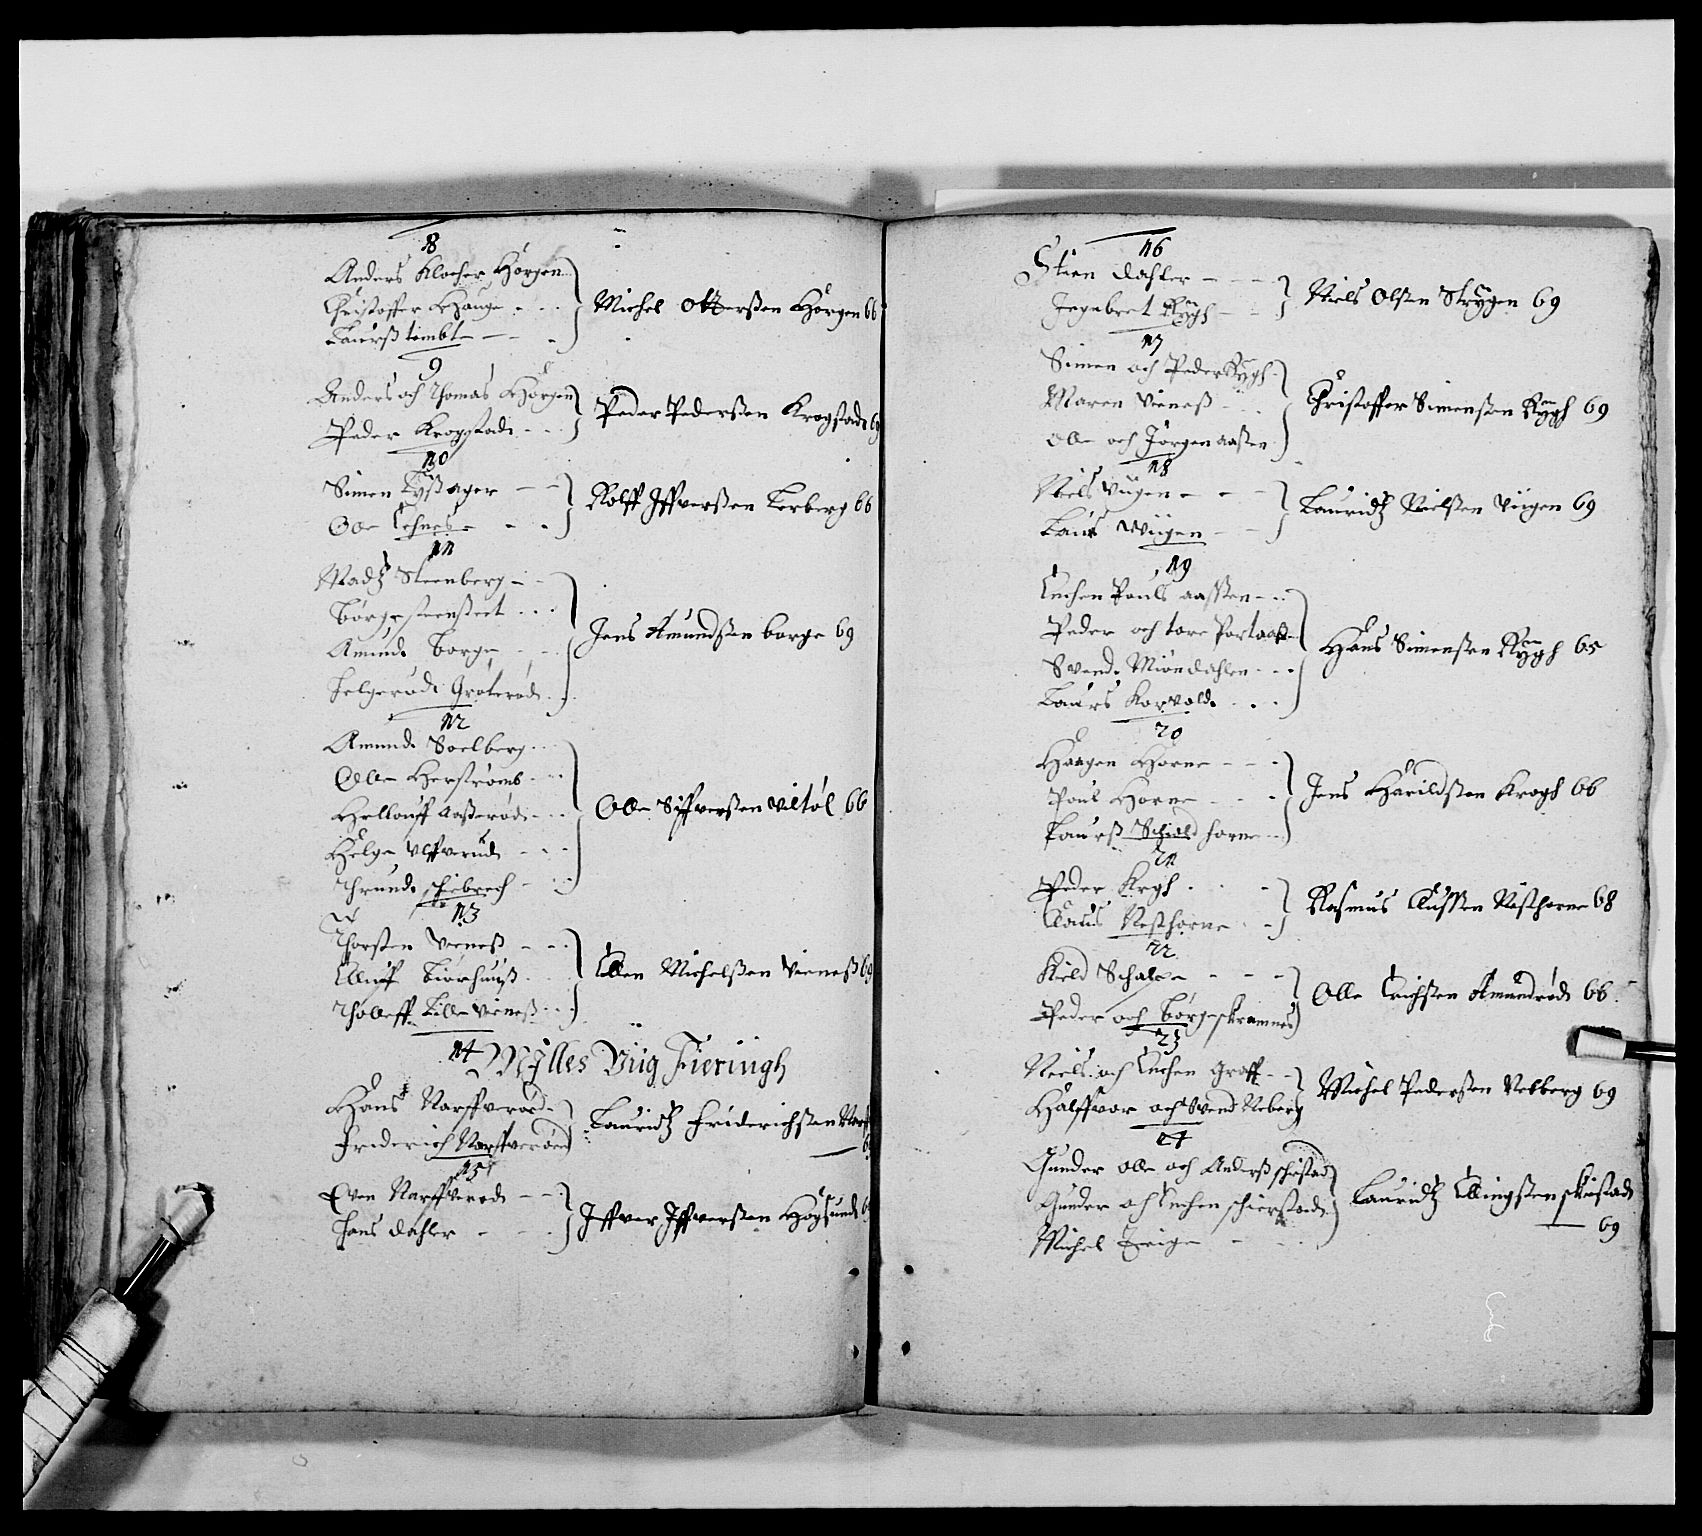 8
Anders Klocher Horgen
Christoffer Hauge
Laurß tombt
Michel Otterßen Horgen 66
9
Anders och Thomas Horgen
Peder Krogstad
Peder Pederßen Krogstad 69
10
Simen Tyßager
Ole Lehne
Rolff Iffverßen Berberg 66
11
Madtz Steenberg
Borge steenseet
Amund Borge
Helgerød Groterød
Jens Amundsen borge 69
12
Amund Soelberg
Olle Herstrømb
Hellouff Aaserød
Helge Ulffverud
Thrund schiebrech
Olle Siffverßen Viltøl 66
13
Thorsten Vieneß
Elluff Biørhuuß
Tholleff Lille Vieneß
Ellen Michelßen Vieneß 69
14 Milles Viig Fieringh
Hans Narffverød
Friderich Narffverød
Lauridtz Friderichsen Narff
69
15
Even Narffverød
Hans dahler
Iffver Iffverßen Hogsund 69
16
Stien dahler
Ingebret Rygh
Niels Olsen Strygen 69
17
Simen och Peder Rygh
Maren Vieneß
Olle och Jørgen aasen
Christoffer Simensen Rygh 69
18
Niels Viigen
Laurs Wiigen
Lauridtz Nielsen Viigen 69
19
Luchen Pouls aassen
Peder och tore Portaas
Svend Miøndahlen
Laurs Korvold
Hans Simensen Rygh 65
20
Haagen Horne
Poul Horne
Laurß Schiold horne
Jens Harildsen Krogh 66
21
Peder Krgh
Claus Nesthorne
Rasmus Clussen Nesthorne 68
22
Kield Schalle
Peder och Børge skramnes
Olle Erichsen Amundrød 66
23
Niels och Luchen Groff
Halffvor och Svend Neberg
Michel Pederßen Nelberg 69
24
Gunder Olle och Anderß schistad
Gunder och Luchen schierstad
Michel Teige
Lauridtz Ellingsen skistad
69